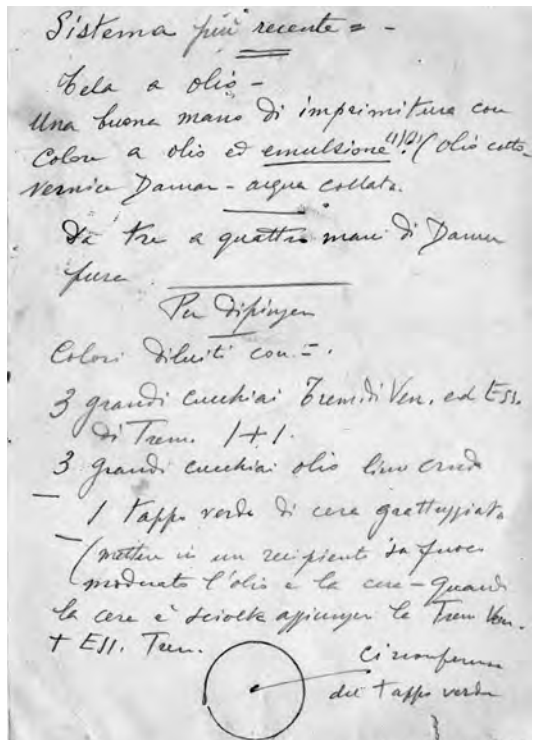 Sistema più recente = -
Tela a olio -
Una buona mano di imprimitura con
Colore a olio ed emulsione (1)(2)! (olio cotto -
vernice Damar - acqua collata.
Da tre a quattro mani di Damar
pura
Per dipinger
Colori diluiti con = .
3 grandi cucchiai Trem. di Ven. ed Ess.
di Trem. 1 + 1.
3 grandi cucchiai olio lino crudo
1 tappo verde di cera grattuggiata
(mettere in un recipiente su fuoco
moderato l'olio e la cera - quando
la cera è sciolta aggiunger la Trem Ven.
+ Ess. Trem.
Circonferenza
del tappo verde